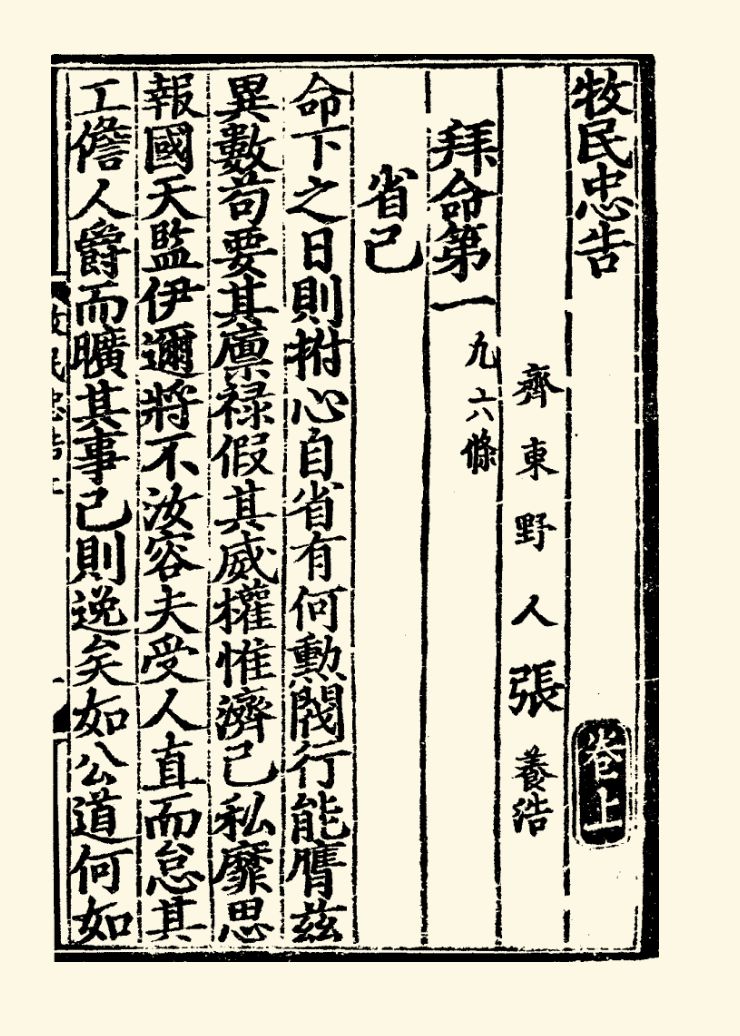 牧民忠告 卷上
齊東野人張養浩
拜命第一 凡六條
省己
命下之日則拊心自省有何勳閥行能膺茲
異數苟要其廩禄假其威權惟濟己私靡思
報國天監伊邇將不汝容夫受人直而怠其
工儋人爵而曠其事己則逸矣如公道何如